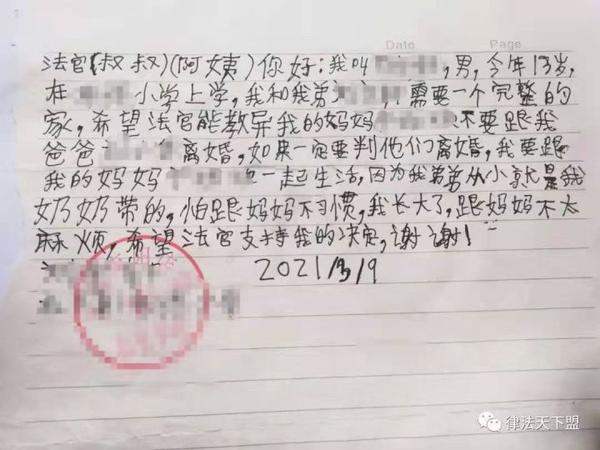 Date Page
法官(叔叔)(阿姨)你好:我叫,男,今年13岁,
在小学上学,我和我弟需要一个完整的
家,希望法官能教导我的妈妈不要跟我
爸爸离婚,如果一定要判他们离婚,我要跟
我的妈妈一起生活,因为我弟弟从小就是我
奶奶带的,怕跟妈妈不习惯,我长大了,跟妈妈不太
麻烦,希望法官支持我的决定,谢谢!
2021
律法天下盟